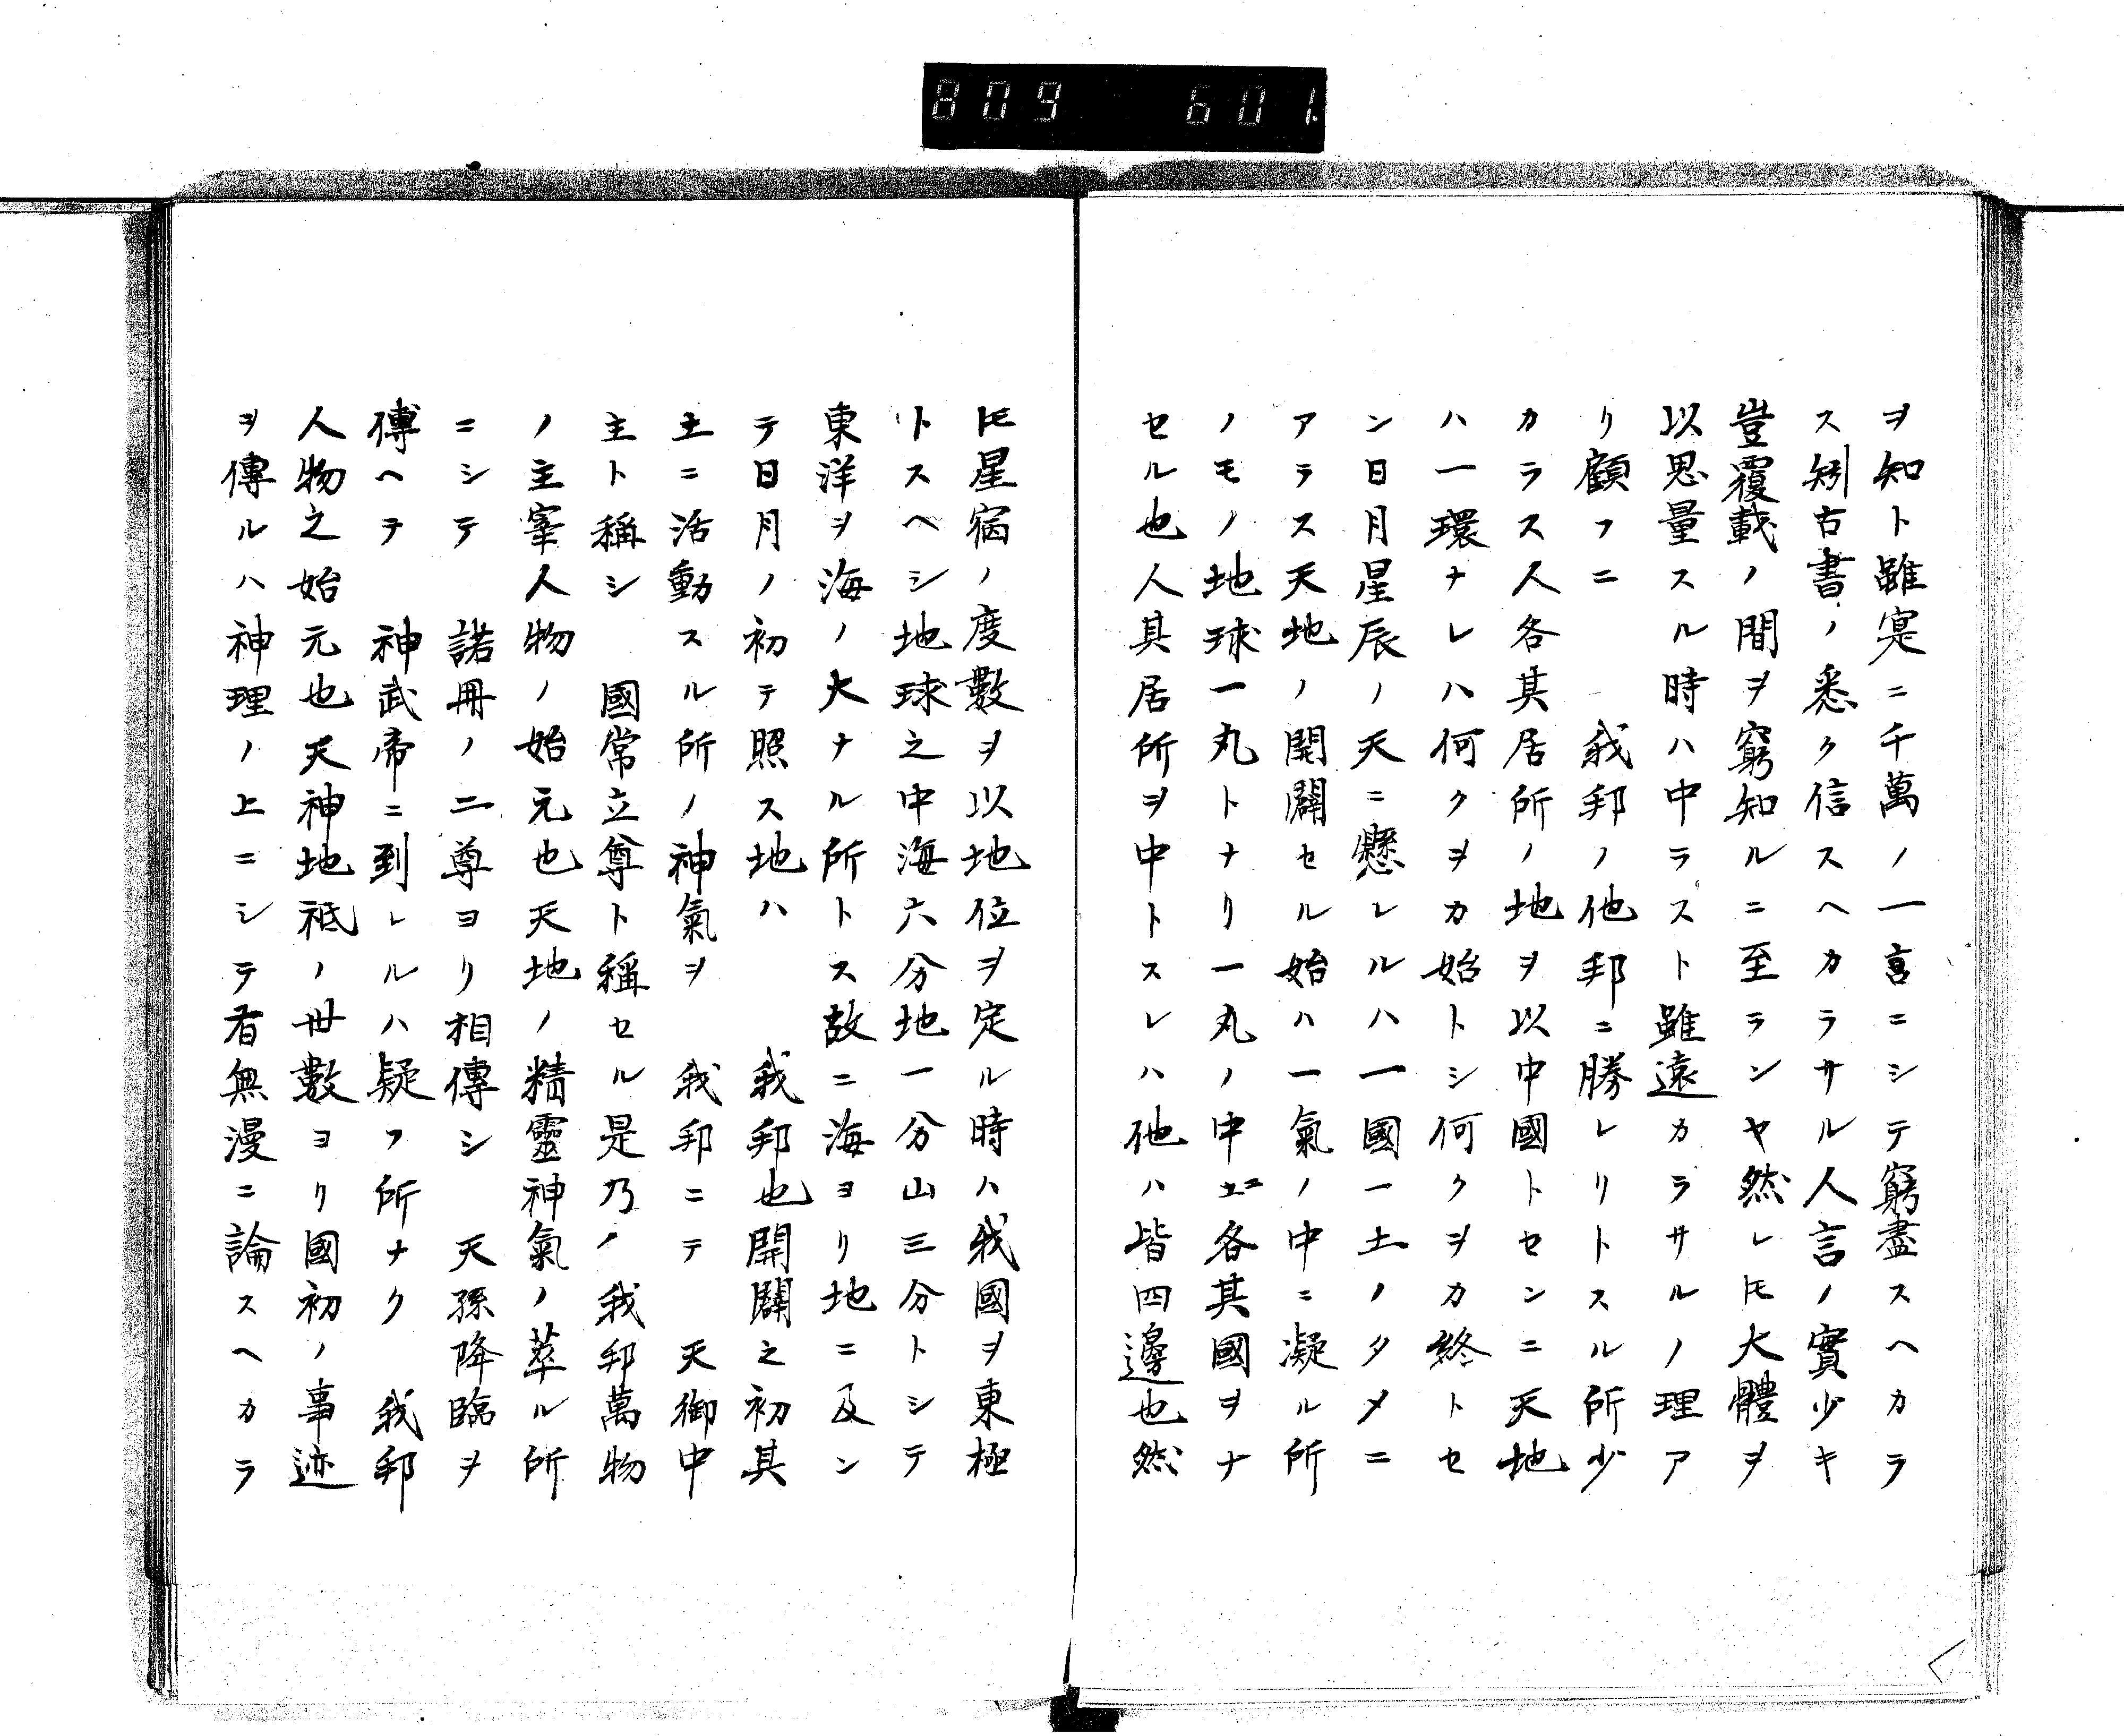 809 601.
ヲ知ト雖寔ニ千萬ノ一言ニシテ窮盡スヘカラ
ス矧古書ノ悉ク信スヘカラサル人言ノ實少キ
豈覆載ノ間ヲ窮知ルニ至ランヤ然レ𪜈大體ヲ
以思量スル時ハ中ラスト雖遠カラサルノ理ア
リ顧フニ 我邦ノ他邦ニ勝レリトスル所少
カラス人各其居所ノ地ヲ以中國トセンニ天地
ハ一環ナレハ何クヲカ始トシ何クヲカ終トセ
ン日月星辰ノ天ニ懸レルハ一國一土ノタメニ
アラス天地ノ開闢セル始ハ一氣ノ中ニ凝ル所
ノモノ地球一丸トナリ一丸ノ中ニ各其國ヲナ
セル也人其居所ヲ中トスレハ他ハ皆四邊也然
𪜈星宿ノ度數ヲ以地位ヲ定ル時ハ我國ヲ東極
トスヘシ地球之中海六分地一分山三分トシテ
東洋ヲ海ノ大ナル所トス故ニ海ヨリ地ニ及ン
テ日月ノ初テ照ス地ハ 我邦也開闢之初其
土ニ活動スル所ノ神氣ヲ 我邦ニテ 天御中
主ト稱シ 國常立尊ト稱セル是乃ノ我邦萬物
ノ主宰人物ノ始元也天地ノ精靈神氣ノ萃ル所
ニシテ 諾冊ノ二尊ヨリ相傳シ 天孫降臨ヲ
傳ヘテ 神武帝ニ到レルハ疑フ所ナク 我邦
人物之始元也天神地祗ノ世數ヨリ國初ノ事迹
ヲ傳ルハ神理ノ上ニシテ有無漫ニ論スヘカラ